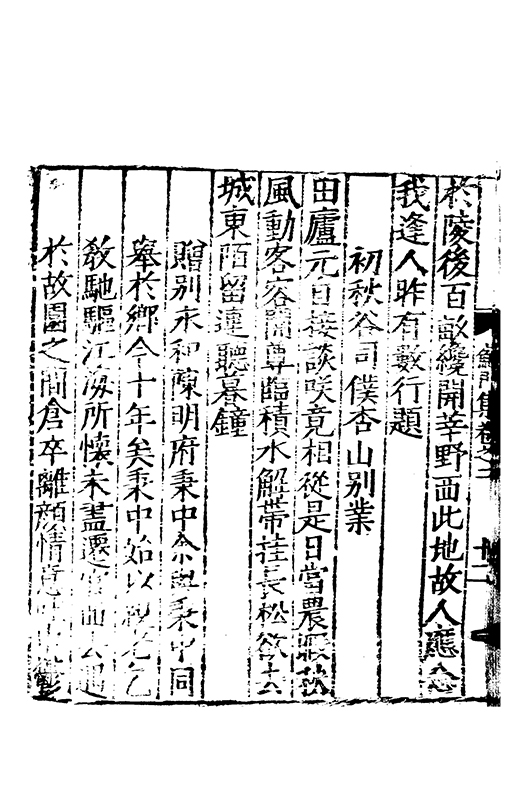 於陵後百畝纔開莘野西此地故人應念
我逢人昨有數行題
初秋谷司僕杏山别業
田廬元自接談咲竟相從是日當農暇秋
風動客容開尊臨積水解帶挂長松欲去
城東陌留連聽暮鐘
贈别永和陳明府秉中余與秉中同
舉於鄉今十年矣秉中始以親老乞
教馳驅江海所懷未盡遷官而去遇
於故園之間倉卒離顏情意
集卷之二
十二